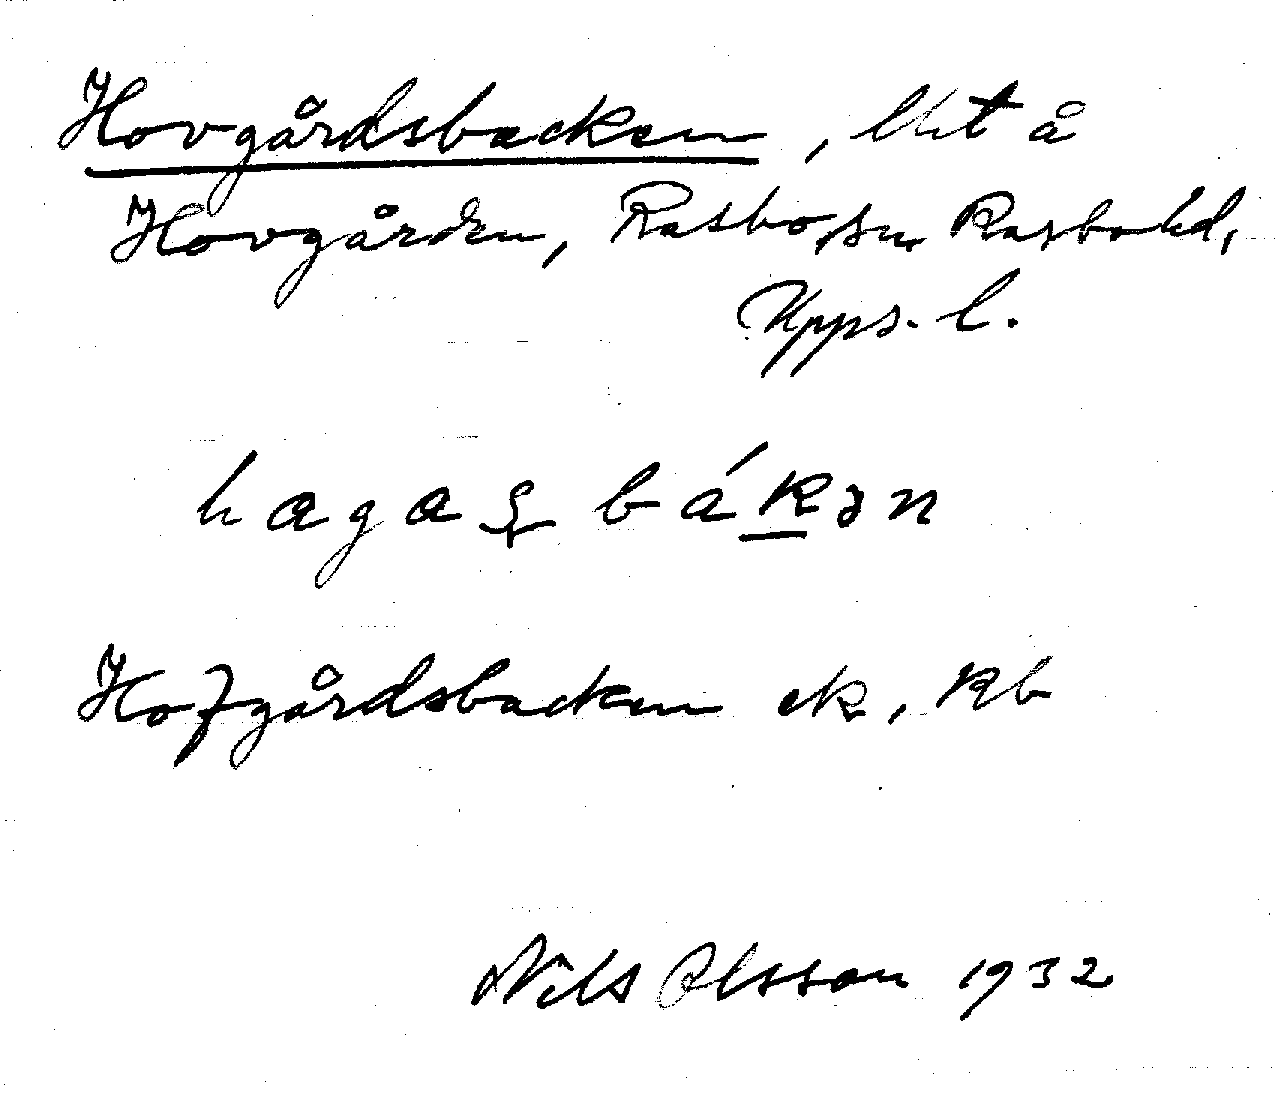 Hovgårdsbacken, lht å
Hovgården, Rasbo sn, Rasbo hd,
Upps. l.
hagaʂ bákən
Hofgårdsbacken ek, Kb
Nils Olsson 1932